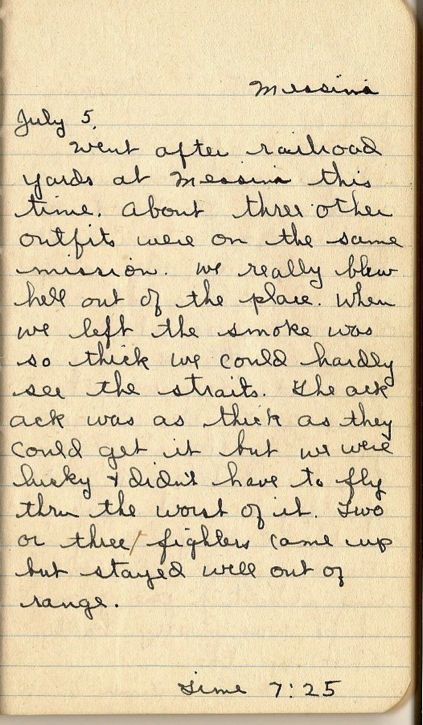 Messina
July 5.
Went after railroad
yards at Messina this
time. About three other
outfits were on the same
mission. We really blew
hell out of the place. When
we left the smoke was
so thick we could hardly
see the straits. The ack
ack was as thick as they
could get it but we were
lucky & didn't have to fly
thru the worst of it. Two
or three/fighters came up
but stayed well out of
range.
Time 7:25